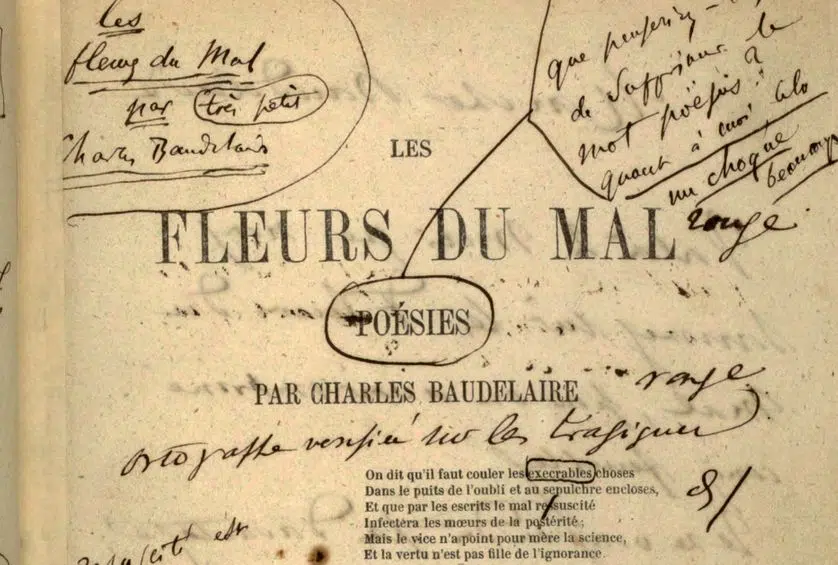 les
fleurs du Mal
par très petit
Charles Baudelaire
que penseriez-
de supprimer le
mot poësies?
quant à moi, cela
me choque
beaucoup
LES
FLEURS DU MAL
rouge.
POÉSIES
PAR CHARLES BAUDELAIRE
rouge
ortographe vérifiée sur les tragiques
On dit qu'il faut couler les execrables choses
Dans le puits de l'oubli et au sepulchre encloses,
Et que par les escrits le mal resuscité
Infectera les mœurs de la postérité;
Mais le vice n'a point pour mère la science,
Et la vertu n'est pas fille de l'ignorance.
est